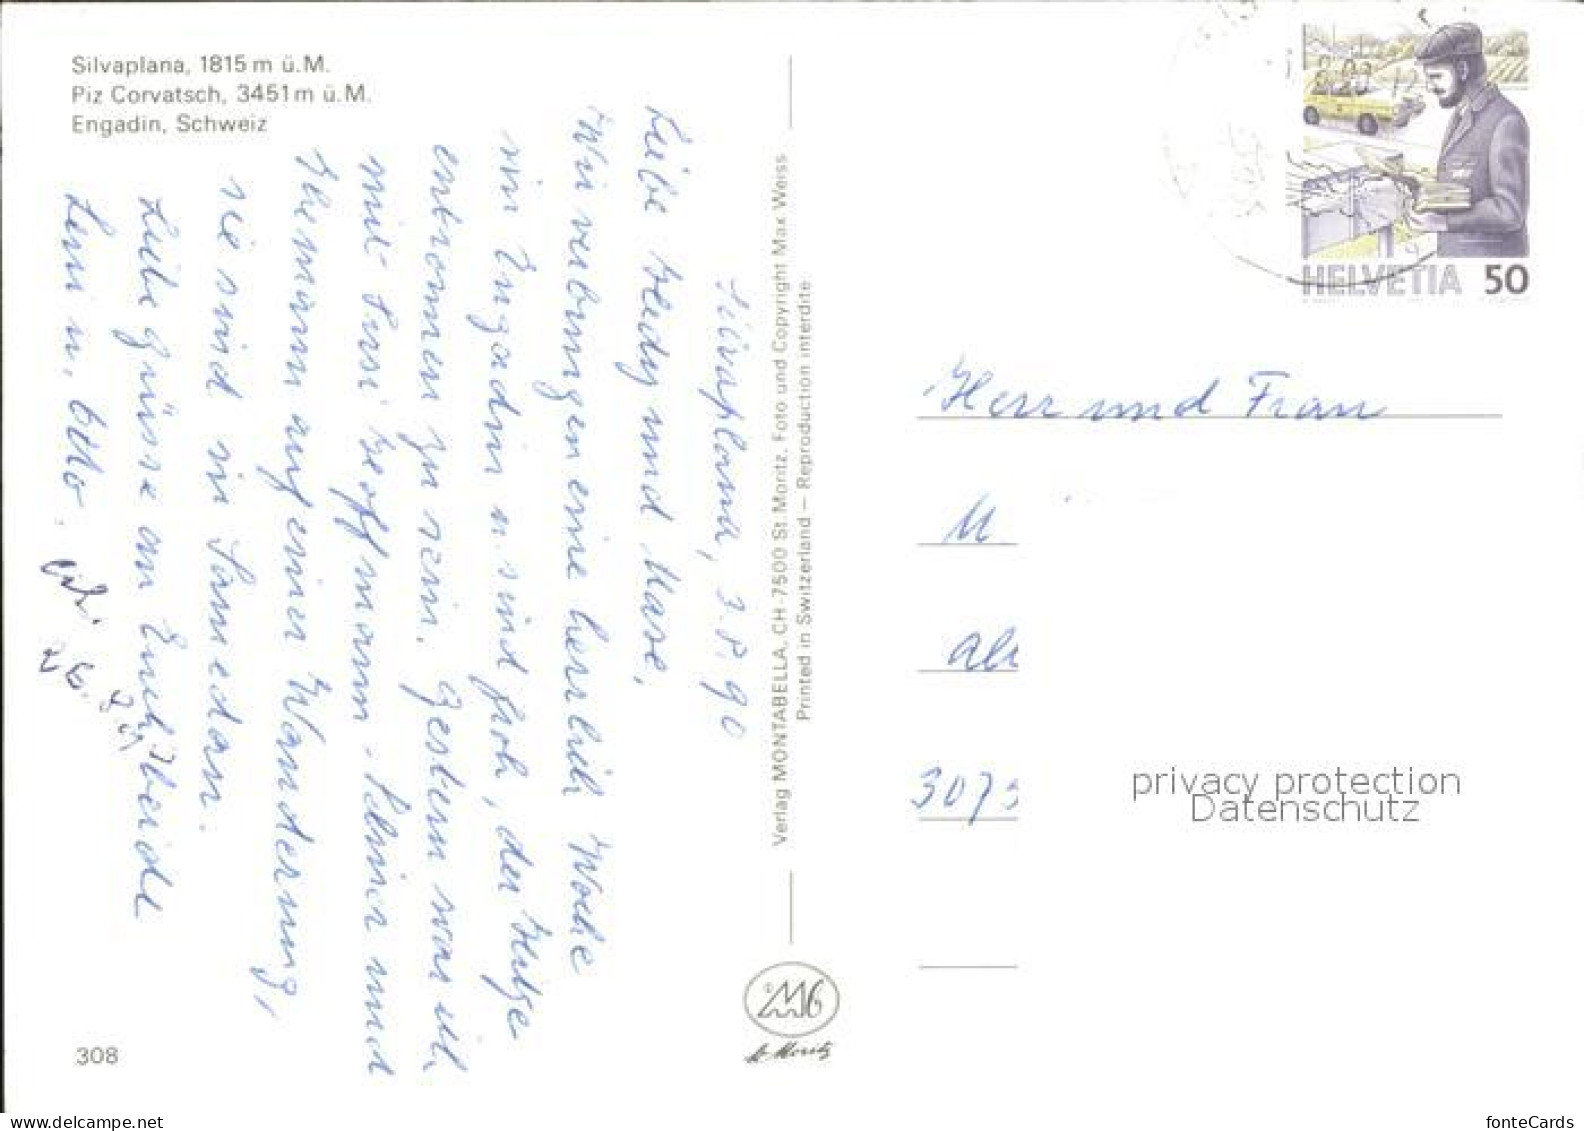 Silvaplana, 1815 m ü.M.
Piz Corvatsch, 3451 m ü.M.
Engadin, Schweiz
Silvaplana, 3.8.90
Liebe Hedy und Mase,
Wir verbringen eine herrlich Woche
im Engadin u. sind froh, der Hitze
entronnen zu sein. Gestern war ich
mit Susi Hoffmann-Schnier und
Ehemann auf einer Wanderung,
sie sind in Samedan.
Liebe Grüsse an Euch beide
Leni u. Otto.
308
Verlag MONTABELLA, CH-7500 St. Moritz, Foto und Copyright Max Weiss
Printed in Switzerland – Reproduction interdite
St. Moritz
HELVETIA 50
Herr und Frau
M
3073
privacy protection
Datenschutz
www.delcampe.net
fonteCards